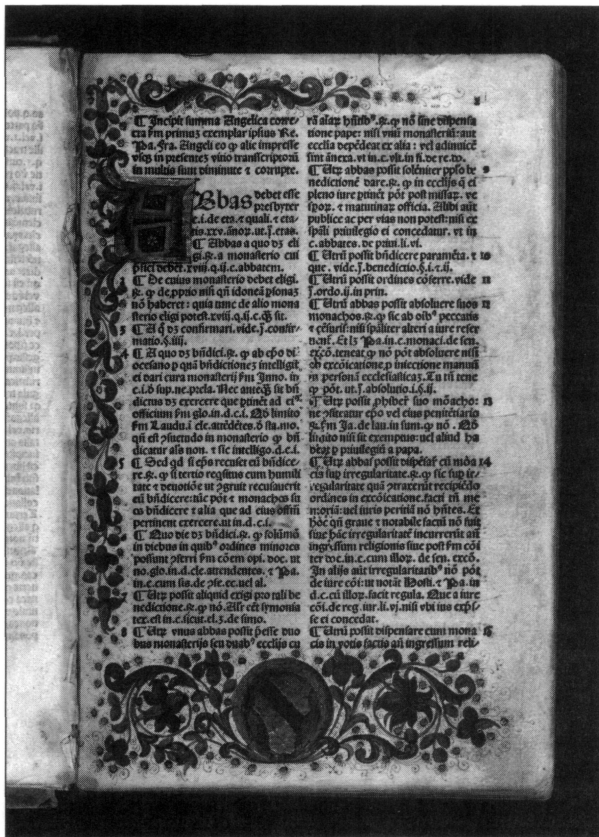 ¶ Incipit summa Angelica corre-
cta fm primuz exemplar ipsius Re.
Pa. fra. Angeli eo ꝙ alie impresse
vsqz in presentez vitio transcriptorū
in multis sunt diminute ⁊ corrupte.
Abbas debet esse
presbyter
⁊ quali. ⁊ eta-
tis.xxv.ānoꝝ.ut.ſ.etas.
¶ Abbas a quo dz eli
gi.℞. a monasterio cui
.xviij.q.ij.c.abbatem.
2 ¶ De cuius monasterio debet eligi.
℞. ꝙ de ꝓprio nisi qn̄ idoneā ꝑsonaz
non haberet: quia tunc de alio mona
sterio eligi potest.xviij.q.ij.c. sit.
3 ¶ A q̄ dz confirmari.vide.ſ.confir-
matio.§.iiij.
4 ¶ A quo dz bn̄dici.℞. ꝙ ab ep̄o di
ocesano ꝑ quā bn̄dictionez intelligit̄
ei dari cura monasterij fm Inno. in
c.i.δ sup.ne.prela. Nec anteq̄ȝ sit bn̄
dictus dz exercere que ꝑtinēt ad ei⁹
officium fm glo.in.d.c.i. limito
fm Laudu.ī cle.atēdētes.δ sta.mo.
q̄si est ꝯsuetudo in monasterio ꝙ bn̄
dicatur als non. ⁊ sic intelligo.d.c.i.
5 ¶ Sed qd si eps recuset eū bn̄dice-
re.℞. ꝙ si tertio reqsitus cum humili
tate ⁊ deuotiōe ut ꝯgruit recusauerit
eū bn̄dicere: tūc pōt ⁊ monachos su
os bn̄dicere ⁊ alia que ad eius offm̄
pertinent exercere.ut in.d.c.i.
6 ¶ Quo die dz bn̄dici.℞. ꝙ solūmō
in diebus in quib⁹ ordines minores
possunt ꝯferri fm cōem opi.doc. ut
no.glo.in.d.cle.attendentes.⁊ Pa.
in.c.cum sis.de ꝯse.ec.uel al.
7 ¶ Utꝝ possit aliquid exigi pro tali be
nedictione.℞. ꝙ nō. Als eēt symonia
tex.est in.c.sicut.el.3.de simo.
8 ¶ Utꝝ vnus abbas possit p̄esse duo
bus monasterijs seu duab⁹ ecclijs cu
rā alaꝝ hn̄tib⁹.℞. ꝙ nō sine dispensa
tione pape: nisi vnū monasteriū: aut
ecclia depēdeat ex alia: vel adinuicē
sint ānexa.vt in.c.vlt.in fi.de re.do.
¶ Utꝝ abbas possit solēniter ꝓpso be 9
nedictionē dare.℞. ꝙ in ecclijs q̄ ei
pleno iure ꝑtinēt pōt post missaꝝ. ve
spoꝝ. ⁊ matutinaꝝ officia. Alibi aūt
publice ac per vias non potest: nisi ex
spāli priuilegio ei concedatur. vt in
c.abbates.de priui.li.vi.
¶ Utrū possit bn̄dicere paramēta. ⁊ 10
que. vide.ſ.benedictio.§.i.⁊.ij.
¶ Utrū possit ordines cōferre.vide 11
ſ.ordo.ij.in prin.
¶ Utrū abbas possit absoluere suos 12
monachos.℞. ꝙ sic ab oib⁹ peccatis
⁊ cēsuris: nisi spāliter alteri a iure reser
uent̄. Et lȝ Pa.in.c.monaci.de sen.
exco̅.teneat.ꝙ nō pōt absoluere nisi
ob excōicatione.ꝑ iniectione manuū
in personā ecclesiasticaȝ. Tu tn̄ tene
ꝙ pōt. ut.ſ.absolutio.i.§.ij.
¶ Utꝝ possit ꝓhibere suo mōacho: 13
ne ꝯfiteatur ep̄o vel eius penitētiario
℞. fm Ja. de lau.in sum. ꝙ nō. Nō
limito nisi sit exemptus: uel aliud ha
beat̄ ꝑ priuilegiū a papa.
¶ Utꝝ abbas possit dispēsare cū mōa 14
cis sup irregularitate.℞. ꝙ sic sup ir-
regularitate quā ꝯtraxerūt recipiēdo
ordines in excōicatione.facti tn̄ me
moriā: uel iuris peritiā nō hn̄tes. Et
hōc qn̄ graue ⁊ notabile factū nō fuit
siue hāc irregularitatē incurrerūt an̄
ingressum religionis siue post fm cōi
ter doc.in.c.cum illoꝝ. de sen. excō.
In alijs aūt irregularitatib⁹ nō pōt
de iure cōi: ut notāt Hosti. ⁊ Pa. in
d.c.cū illoꝝ.facit regula. Que a iure
cōi.de reg.iur.li.vj.nisi vbi ius exp̄s-
se ei concedat.
¶ Utrū possit dispensare cum mona 15
cis in votis factis an̄ ingressum reli-